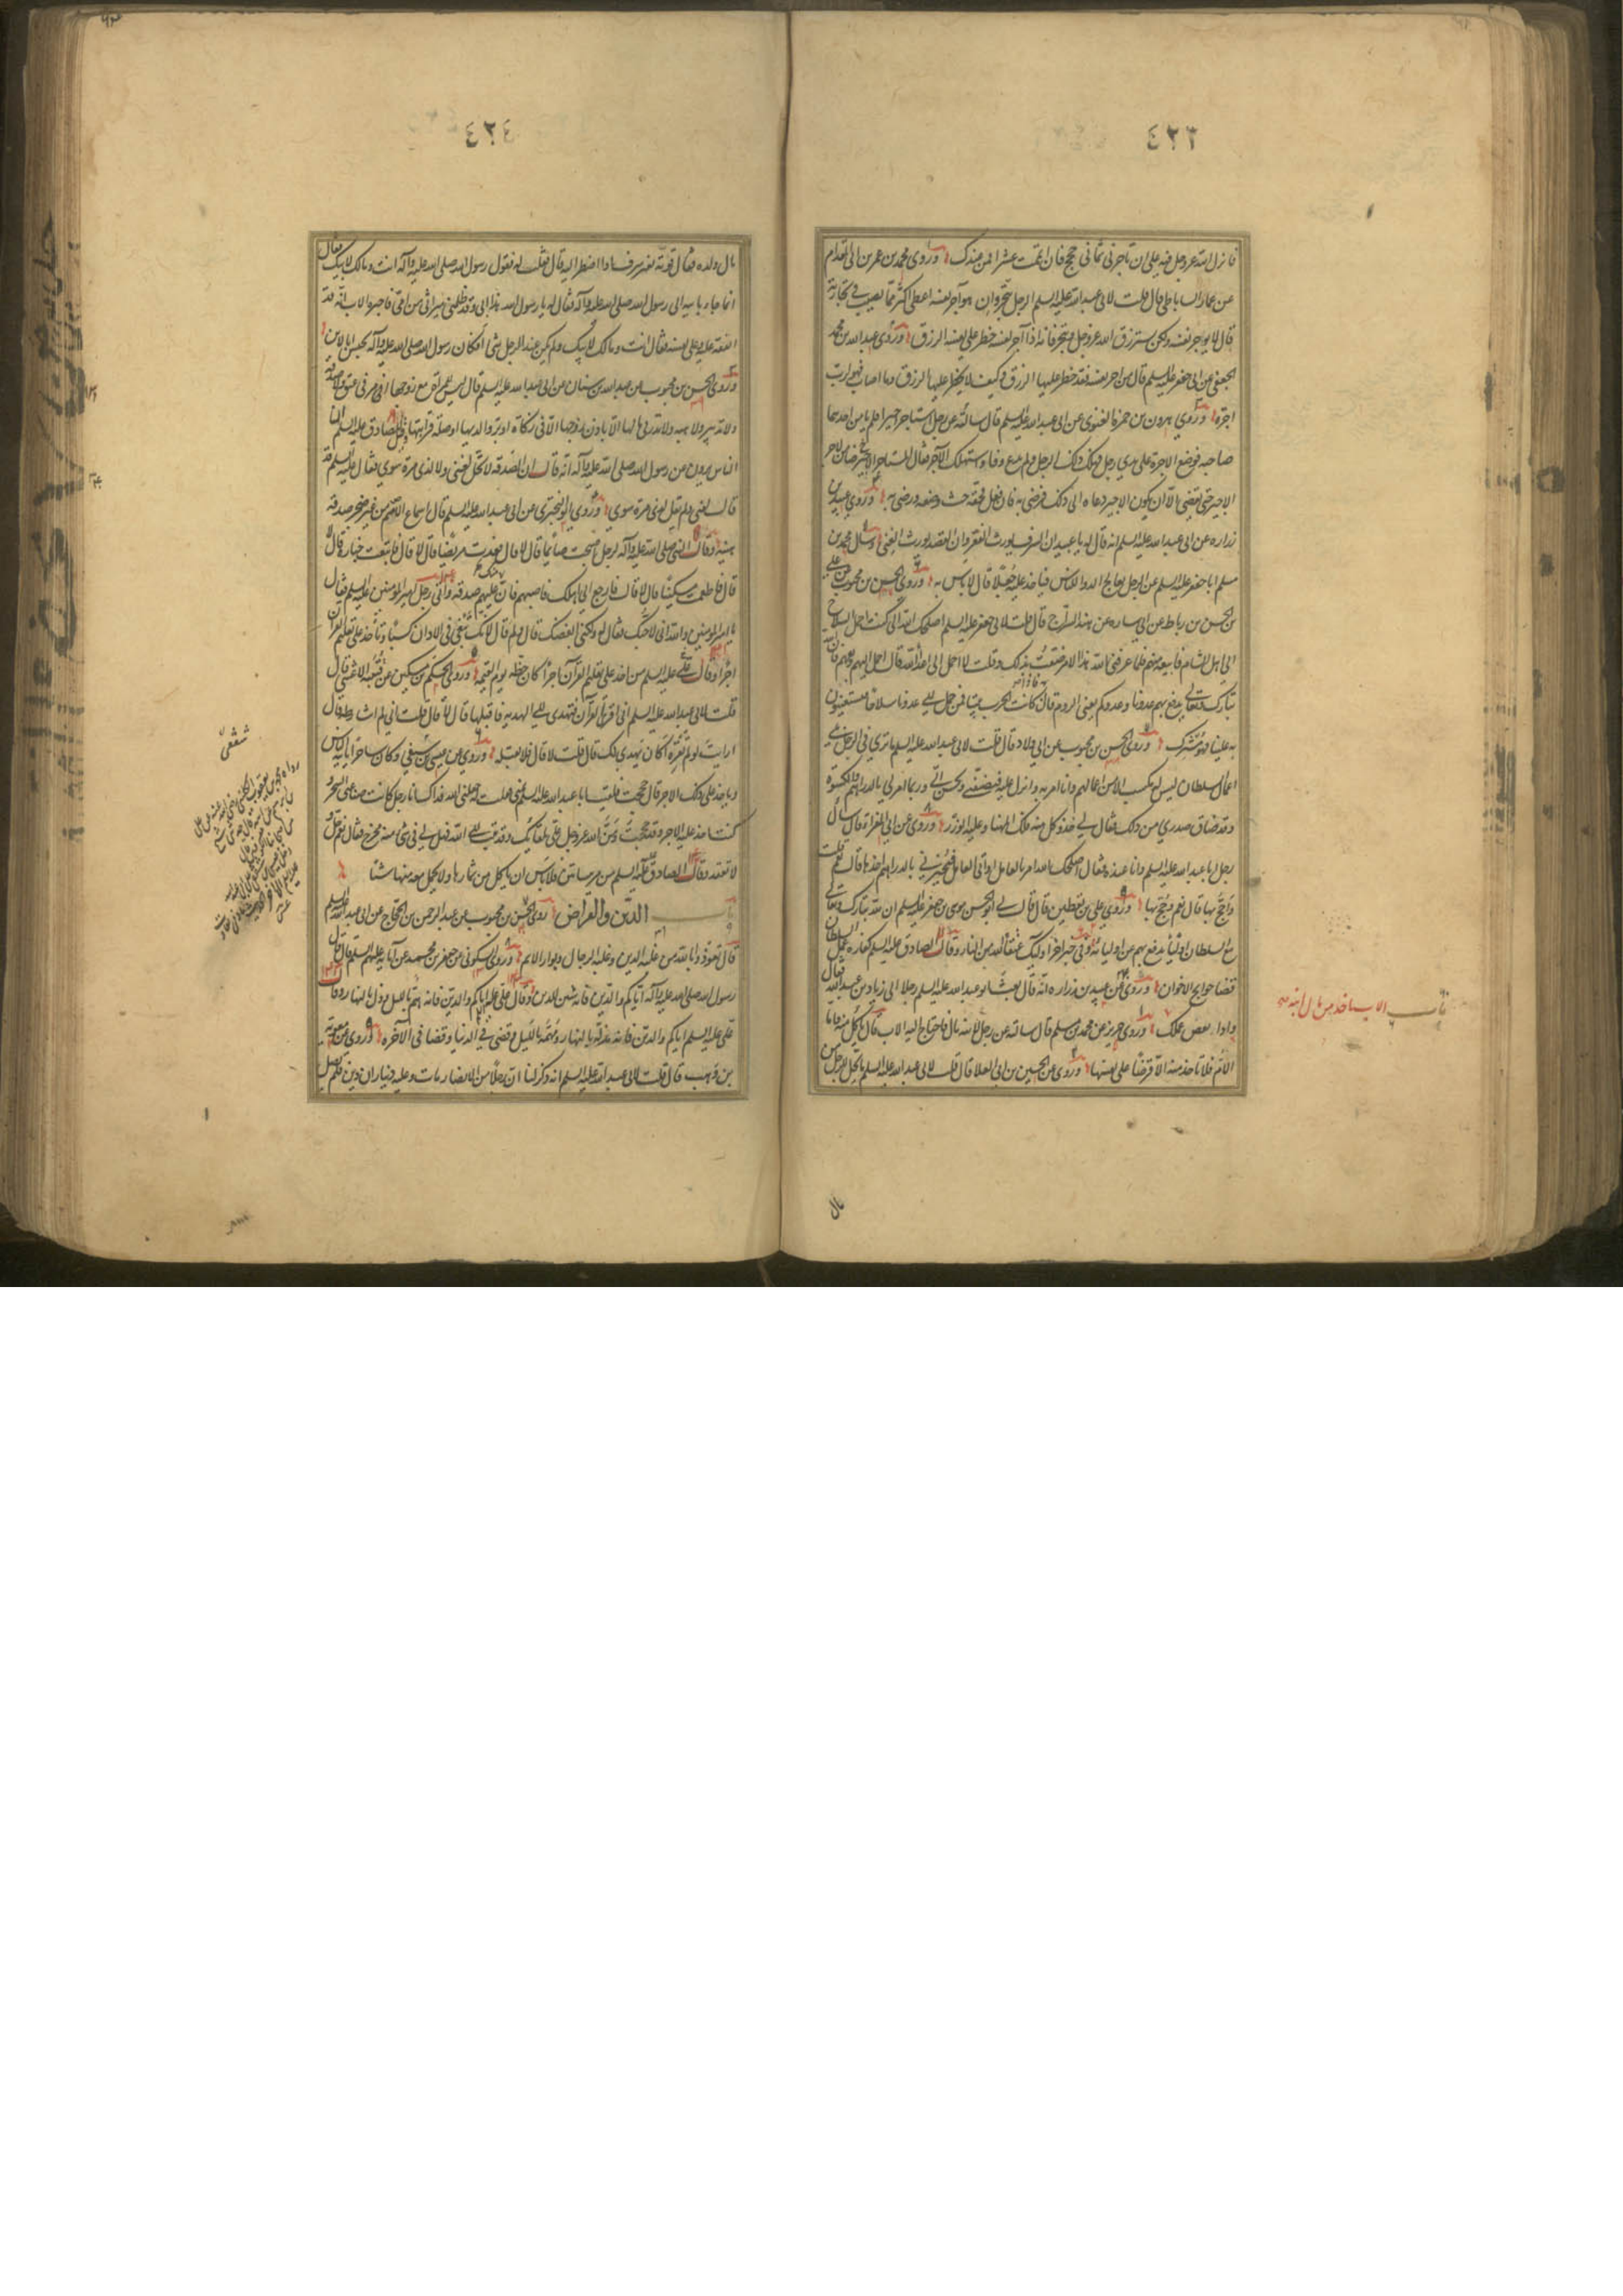 ٤٢٣
فانزل الله عز وجل فيه على ان تاجرنى ثمانى حجج فان اتممت عشرا فمن عندك وروى محمد بن عمرو بن ابى المقدام
عن عمار الساباطى قال قلت لابى عبد الله عليه السلم الرجل يتجر وان هو آجر نفسه اعطى اكثر مما يصيب فى تجارته
قال لا يواجر نفسه ولكن يسترزق الله عز وجل ويتجر فانه اذا آجر نفسه حظر على نفسه الرزق وروى عبد الله بن محمد
الجعفى عن ابى جعفر عليه السلم قال من آجر نفسه فقد حظر عليها الرزق وكيف لا يحظر عليها الرزق وما اصاب فهو لرب
اجره وروى هرون بن حمزة الغنوى عن ابى عبد الله عليه السلم قال سالته عن رجل استاجر اجيرا فلم يامن احدهما
صاحبه فوضع الاجرة على يدى رجل فهلك ذلك الرجل ولم يدع وفاء واستهلك الاجر فقال المستاجر ضامن لاجر
الاجير حتى يقضى الا ان يكون الاجير دعاه الى ذلك فرضى به فان فعل فحقه حيث وضعه ورضى به وروى عبيد بن
زراره عن ابى عبد الله عليه السلم انه قال له يا عبيد ان السرف يورث الفقر وان القصد يورث الغنى وسال محمد بن
مسلم ابا جعفر عليه السلم عن الرجل يعالج الدواء للناس فياخذ عليه جعلا قال لا باس به وروى الحسن بن محبوب عن على
بن الحسن بن رباط عن ابى ساره عن هند السراج قال قلت لابى جعفر عليه السلم اصلحك الله انى كنت احمل السلاح
الى اهل الشام فابيعه منهم فلما عرفنى الله هذا الامر ضقت بذلك وقلت لا احمل الى اعداء الله قال احمل اليهم وبعهم فان الله
تبارك وتعالى يدفع بهم عدونا وعدوكم يعنى الروم قال فاذا كانت الحرب بيننا فمن حمل الى عدونا سلاحا يستعينون
به علينا فهو مشرك وروى الحسن بن محبوب عن ابى ولاد قال قلت لابى عبد الله عليه السلم ما ترى فى الرجل يلى
اعمال السلطان ليس له مكسب الا من اعمالهم وانا امر به وانزل عليه فيضيفنى ويحسن الى وربما امر لى بالدراهم والكسوة
وقد ضاق صدرى من ذلك فقال لى خذ وكل منه فلك المهنا وعليه الوزر وروى عن ابى المغرا قال سال
رجل ابا عبد الله عليه السلم وانا عنده فقال اصلحك الله امر بالعامل او آتى العامل فيجيزنى بالدراهم آخذها قال نعم قلت
واحج بها قال نعم وحج بها وروى على بن يقطين قال قال لى ابو الحسن موسى بن جعفر عليه السلم ان لله تبارك وتعالى
مع السلطان اولياء يدفع بهم عن اوليائه وفى خبر آخر اولئك عتقاء الله من النار وقال الصادق عليه السلم كفاره عمل السلطان
قضاء حوايج الاخوان وروى عن عبيد بن زراره انه قال بعث ابو عبد الله عليه السلم رجلا الى زياد بن عبيد الله فقال
وداو بعض عملك وروى حريز عن محمد بن مسلم قال سالته عن رجل لابنه مال فاحتاج اليه الاب قال ياكل منه فاما
الام فلا تاخذ منه الا قرضا على نفسها وروى عن الحسين بن ابى العلا قال قلت لابى عبد الله عليه السلم ما يحل للرجل من
باب الاب ياخذ من مال ابنه
مال
٤٢٤
مال ولده فقال قوته بغير سرف اذا اضطر اليه قال فقلت له فقول رسول الله صلى الله عليه وآله انت ومالك لابيك فقال
انما جاء بابيه الى رسول الله صلى الله عليه وآله فقال له يا رسول الله هذا ابى وقد ظلمنى ميراثى من امى فاخبره الاب انه قد
انفقه عليه وعلى نفسه فقال انت ومالك لابيك ولم يكن عند الرجل شئ افكان رسول الله صلى الله عليه وآله يحبس ابا لابن
وروى الحسن بن محبوب عن عبد الله بن سنان عن ابى عبد الله عليه السلم قال ليس للمراة مع زوجها امر فى عتق ولا صدقة
ولا تدبير ولا هبه ولا نذر فى مالها الا باذن زوجها الا فى زكاة او بر والديها او صلة قرابتها وقيل للصادق عليه السلم ان
الناس يروون عن رسول الله صلى الله عليه وآله انه قال ان الصدقه لا تحل لغنى ولا لذى مرة سوى فقال عليه السلم قد
قال لغنى ولم يقل لذى مرة سوى وروى ابو البخترى عن ابى عبد الله عليه السلم قال اسماع الاصم من غير ضجر صدقه
هنيه وقال النبى صلى الله عليه وآله لرجل اصبحت صائما قال لا قال فعدت مريضا قال لا قال فاتبعت جنازه قال لا
قال فاطعمت مسكينا قال لا قال فارجع الى اهلك فاصبهم فانه منك عليهم صدقه واتى رجل امير المؤمنين عليه السلم فقال
يا امير المؤمنين والله انى لاحبك فقال له ولكنى ابغضك قال ولم قال لانك تبغى فى الاذان كسبا وتاخذ على تعليم القرآن
اجرا وقال على عليه السلم من اخذ على تعليم القرآن اجرا كان حظه يوم القيمه وروى الحكم بن مسكين عن قتيبه الاعشى قال
قلت لابى عبد الله عليه السلم انى اقرئ القرآن فتهدى الى الهديه فاقبلها قال لا قال قلت انى لم اشارطه قال
ارايت لو لم تقرئه اكان يهدى لك قال قلت لا قال فلا تقبله وروى عن عيسى بن شقفى وكان ساحرا ياتيه الناس
وياخذ على ذلك الاجر قال حججت فلقيت ابا عبد الله عليه السلم بمنى فقلت له جعلنى الله فداك انا رجل كانت صناعتى السحر و
كنت اخذ عليه الاجر وقد حججت ومن الله عز وجل على بلقائك وقد تبت الى الله فهل لى فى شئ منه مخرج فقال نعم حل و
لا تعقد وقال الصادق عليه السلم من مر ببساتين فلا باس ان ياكل من ثمارها ولا يحمل معه منها شئا
باب الدين والقراض روى الحسن بن محبوب عن عبد الرحمن بن الحجاج عن ابى عبد الله عليه السلم
قال تعوذوا بالله من غلبه الدين وغلبه الرجال وبوار الايم وروى السكونى عن جعفر بن محمد عن آبائه عليهم السلم قال قال
رسول الله صلى الله عليه وآله اياكم والدين فانه شين الدين وقال على عليه السلم اياكم والدين فانه هم بالليل وذل بالنهار وقال
على عليه السلم اياكم والدين فانه مذلة بالنهار ومهمة بالليل وقضاء فى الدنيا وقضاء فى الآخره وروى معويه
بن وهب قال قلت لابى عبد الله عليه السلم انه ذكر لنا ان رجلا من الانصار مات وعليه ديناران دين فلم يصل
شقفى